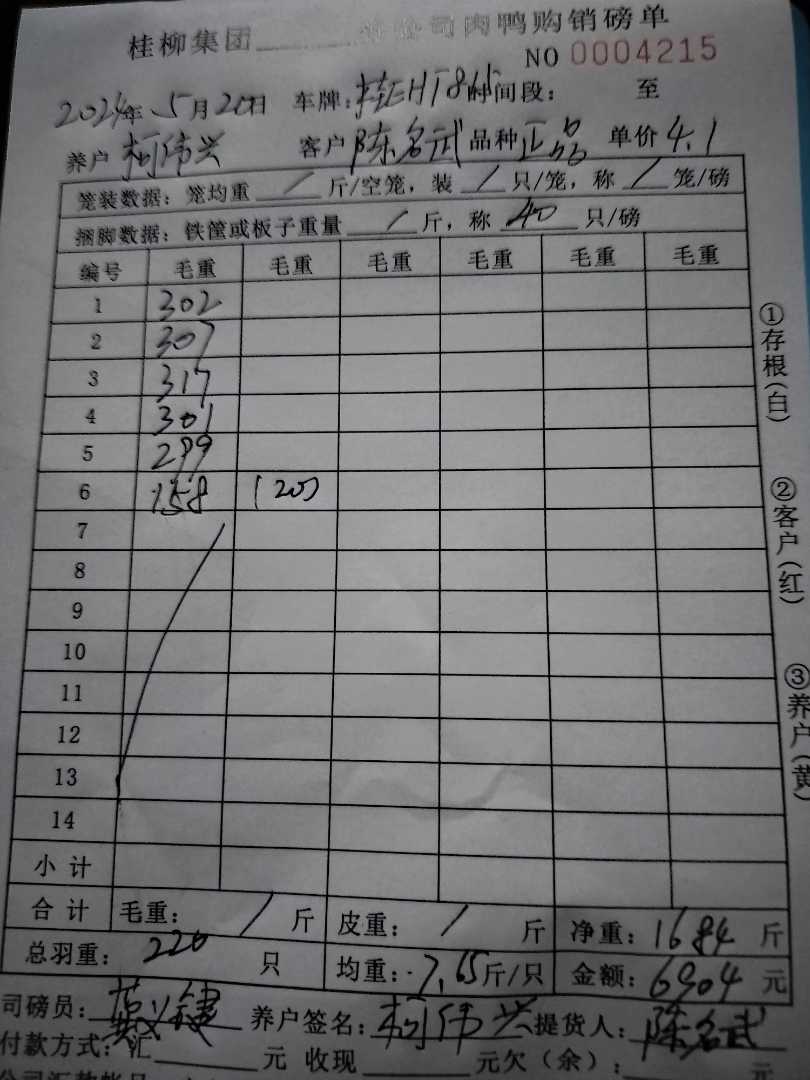 桂柳集团______分公司肉鸭购销磅单
NO 0004215
2024年 5月20日 车牌:桂EHT8 时间段: 至
养户 柯伟兴 客户 陈名武 品种 正品 单价 4.1
笼装数据:笼均重 / 斤/空笼,装 / 只/笼,称 / 笼/磅
捆脚数据:铁筐或板子重量 / 斤,称 40 只/磅
编号 毛重 毛重 毛重 毛重 毛重 毛重
1 302
2 307
3 317
4 301
5 299
6 158 (20)
7
8
9
10
11
12
13
14
小计
合计 毛重: / 斤 皮重: / 斤 净重:1684 斤
总羽重: 220 只 均重:7.65斤/只 金额:6904 元
司磅员: 养户签名:柯伟兴 提货人:陈名武
付款方式:汇______元 收现______元欠(余):______元
①存根(白)
②客户(红)
③养户(黄)